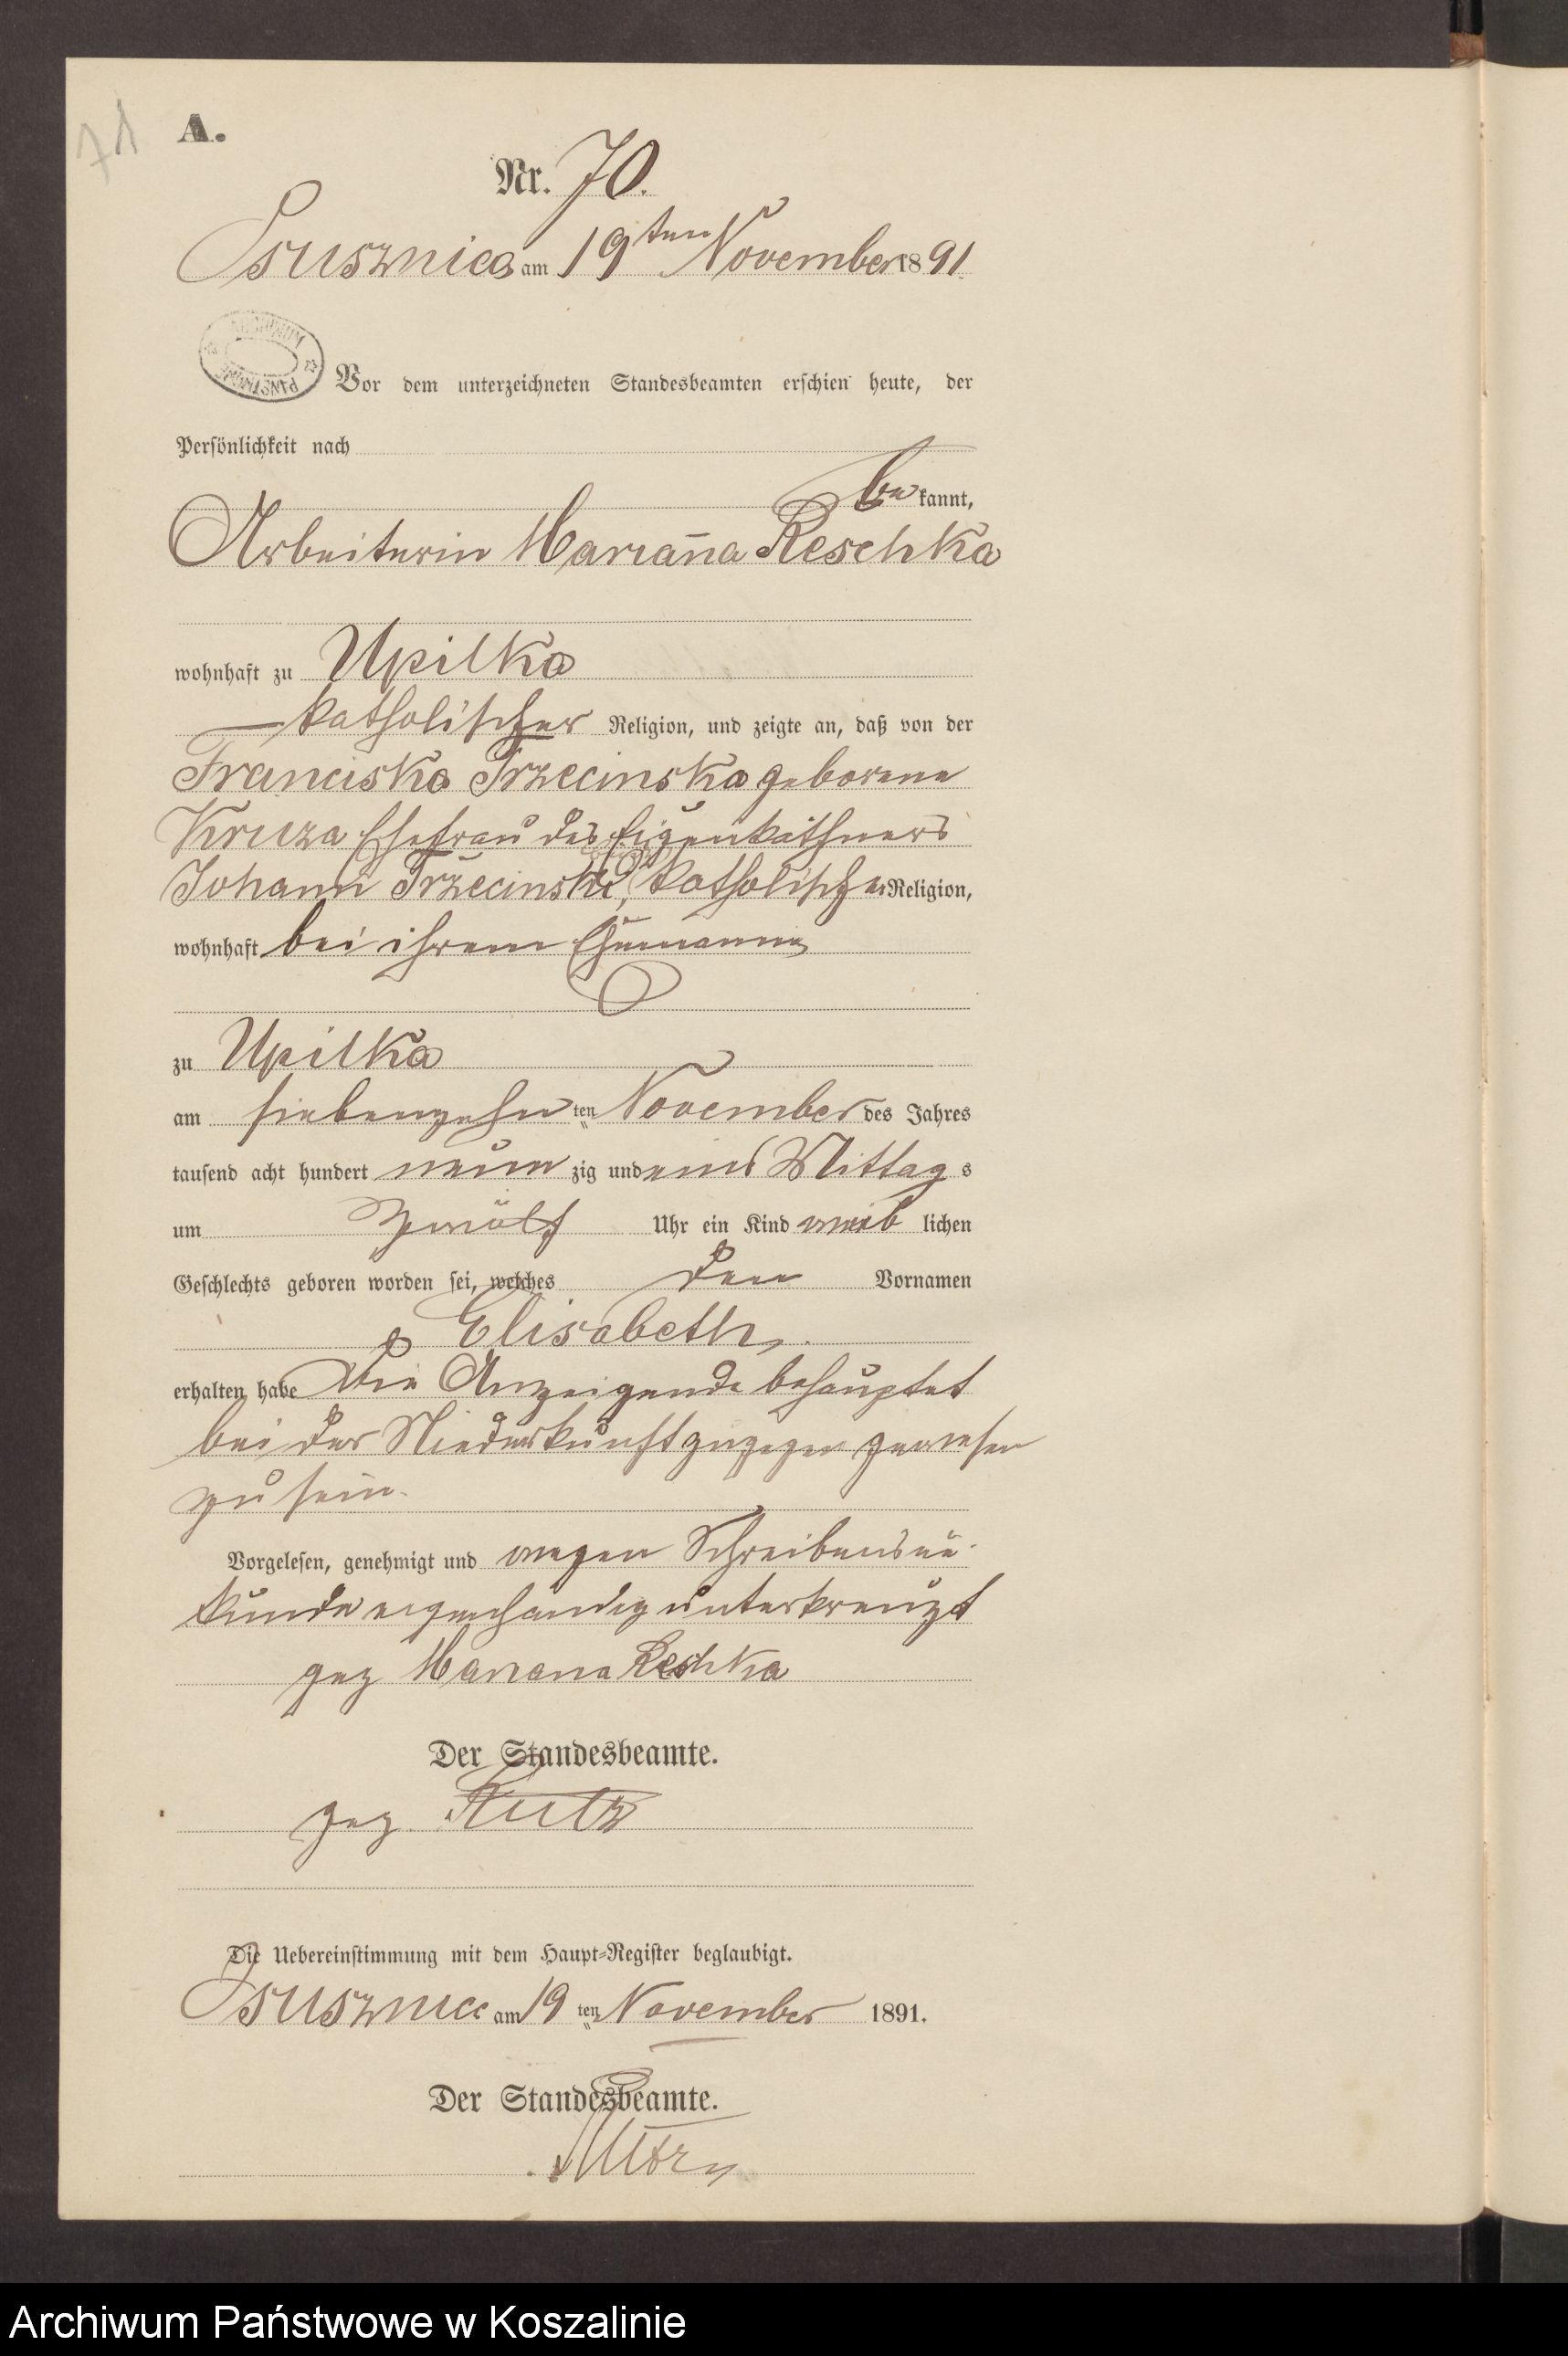 71
A.
Nr. 70.
Osusznica am 19ten November 1891.
ARCHIWUM PAŃSTWOWE
Vor dem unterzeichneten Standesbeamten erschien heute, der
Persönlichkeit nach
be kannt,
Arbeiterin Mariaña Reschka
wohnhaft zu Upilka
katholischer Religion, und zeigte an, daß von der
Franciska Trzecinska geborene
Kruza Ehefrau des Eigenkäthners
Johann Trzecinski, katholischer Religion,
wohnhaft bei ihrem Ehemanne
zu Upilka
am siebenzehn ten November des Jahres
tausend acht hundert neun zig und eins Mittag s
um zwölf Uhr ein Kind weib lichen
Geschlechts geboren worden sei, welches den Vornamen
Elisabeth
erhalten habe Die Anzeigende behauptet
bei der Niederkunft zugegen gewesen
zu sein.
Vorgelesen, genehmigt und wegen Schreibensun-
kunde eigenhändig unterkreuzt
gez Mariana Reschka
Der Standesbeamte.
gez.
Die Uebereinstimmung mit dem Haupt-Register beglaubigt.
Osusznica am 19 ten November 1891.
Der Standesbeamte.
Archiwum Państwowe w Koszalinie